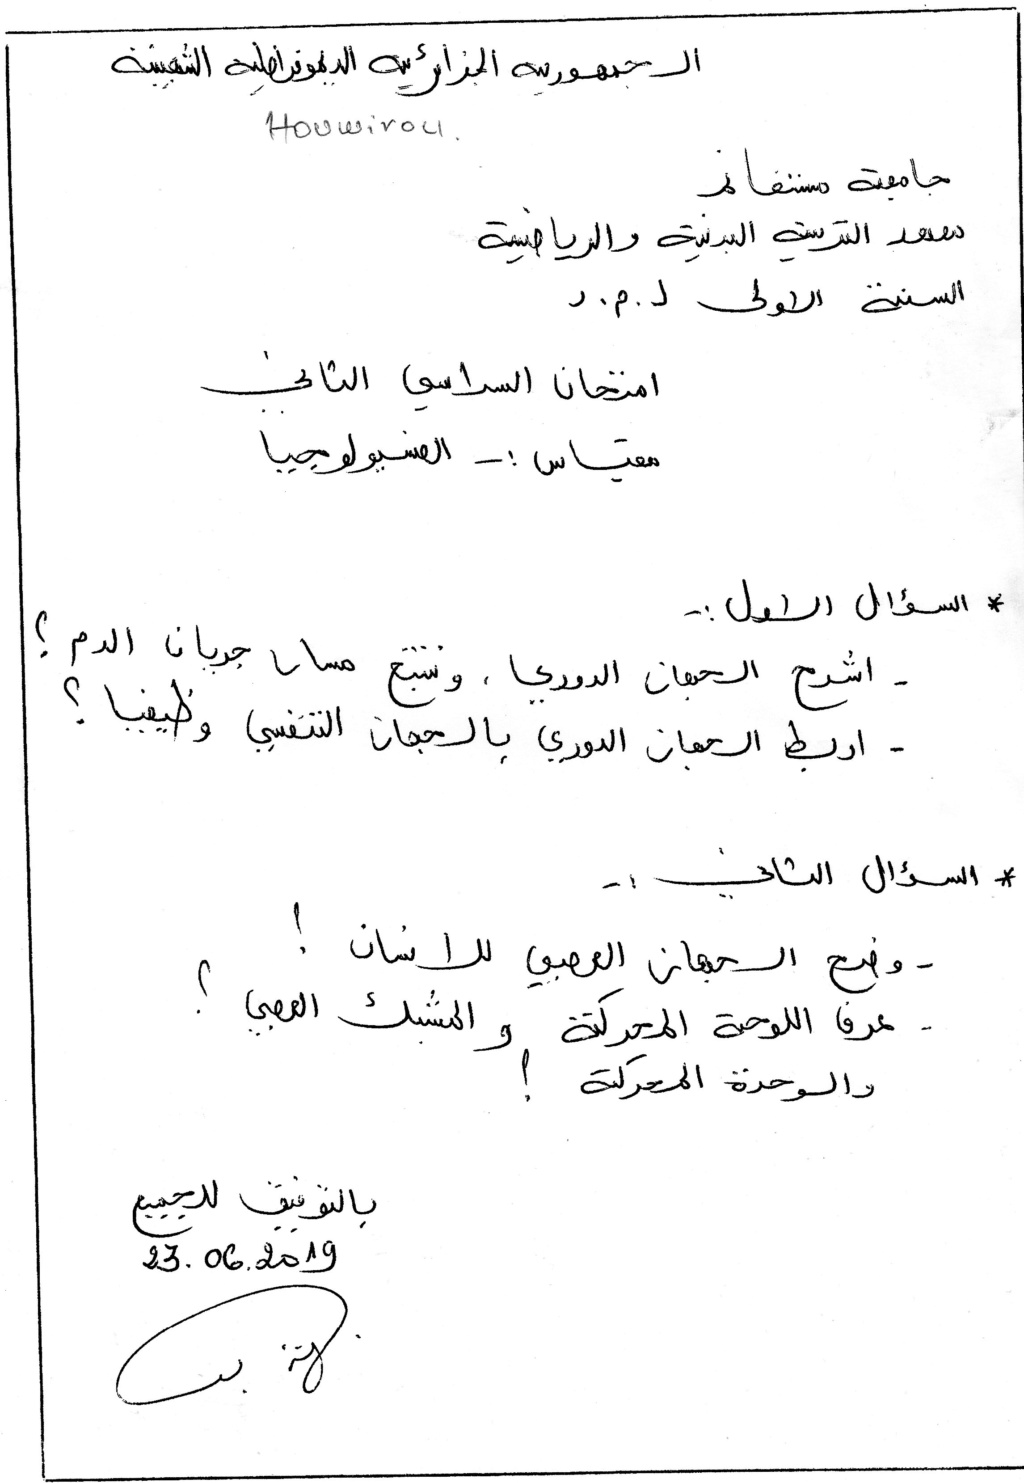 الجمهورية الجزائرية الديموقراطية الشعبية
Houwirou.
جامعة مستغانم
معهد التربية البدنية والرياضية
السنة الاولى ل.م.د
امتحان السداسي الثاني
مقياس :- الفسيولوجيا
* السؤال الاول :-
- اشرح الجهاز الدوري، وتتبع مسار جريان الدم ؟
- اربط الجهاز الدوري بالجهاز التنفسي وظيفيا ؟
* السؤال الثاني :-
- وضح الجهاز العصبي للانسان !
- عرف اللوحة المحركة والمشبك العصبي ؟
والوحدة المحركة !
بالتوفيق للجميع
23.06.2019